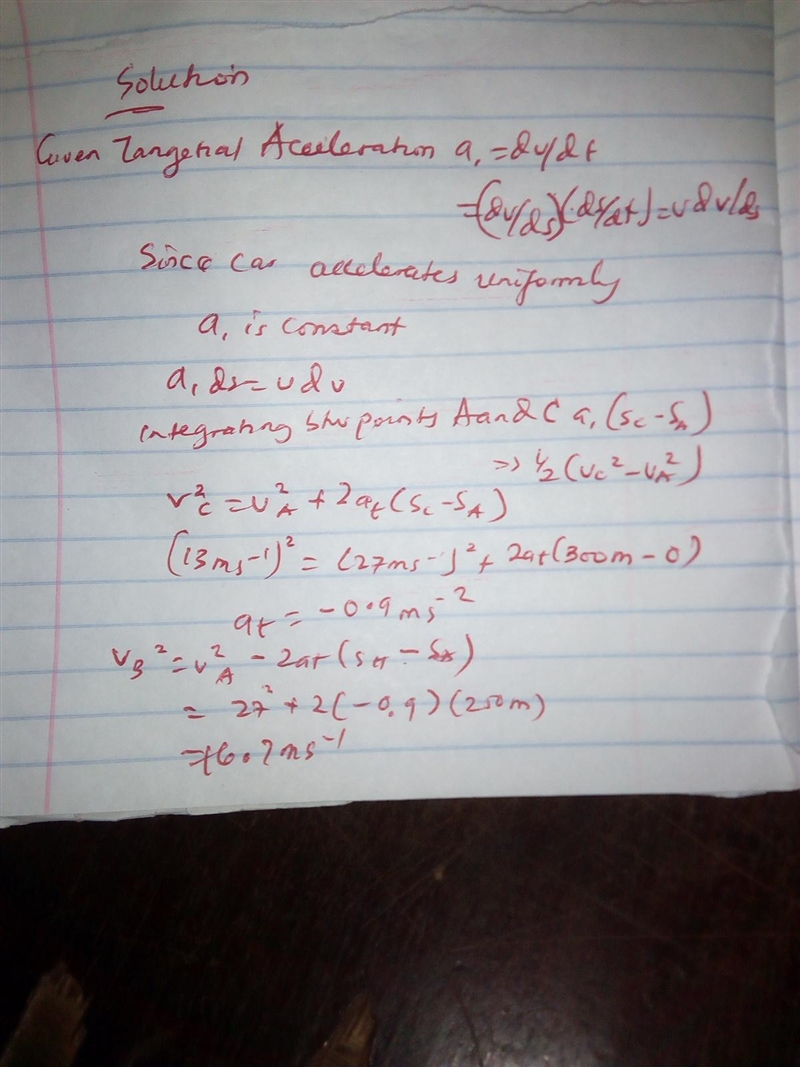 Solution
Given Tangetial Acceleration a, = dv/dt
=(dv/ds)(ds/dt) = v dv/ds
Since Car accelerates uniformly
a, is constant
a, ds = v dv
integrating btw points A and C a, (Sc - SA)
=> 1/2 (Vc² - VA²)
V²C = V²A + 2at (Sc - SA)
(13ms-1)² = (27ms-1)² + 2at (300m - 0)
at = -0.9ms-2
VB² = V²A - 2at (
= 27² + 2(-0.9)(250m)
=16.7ms-1